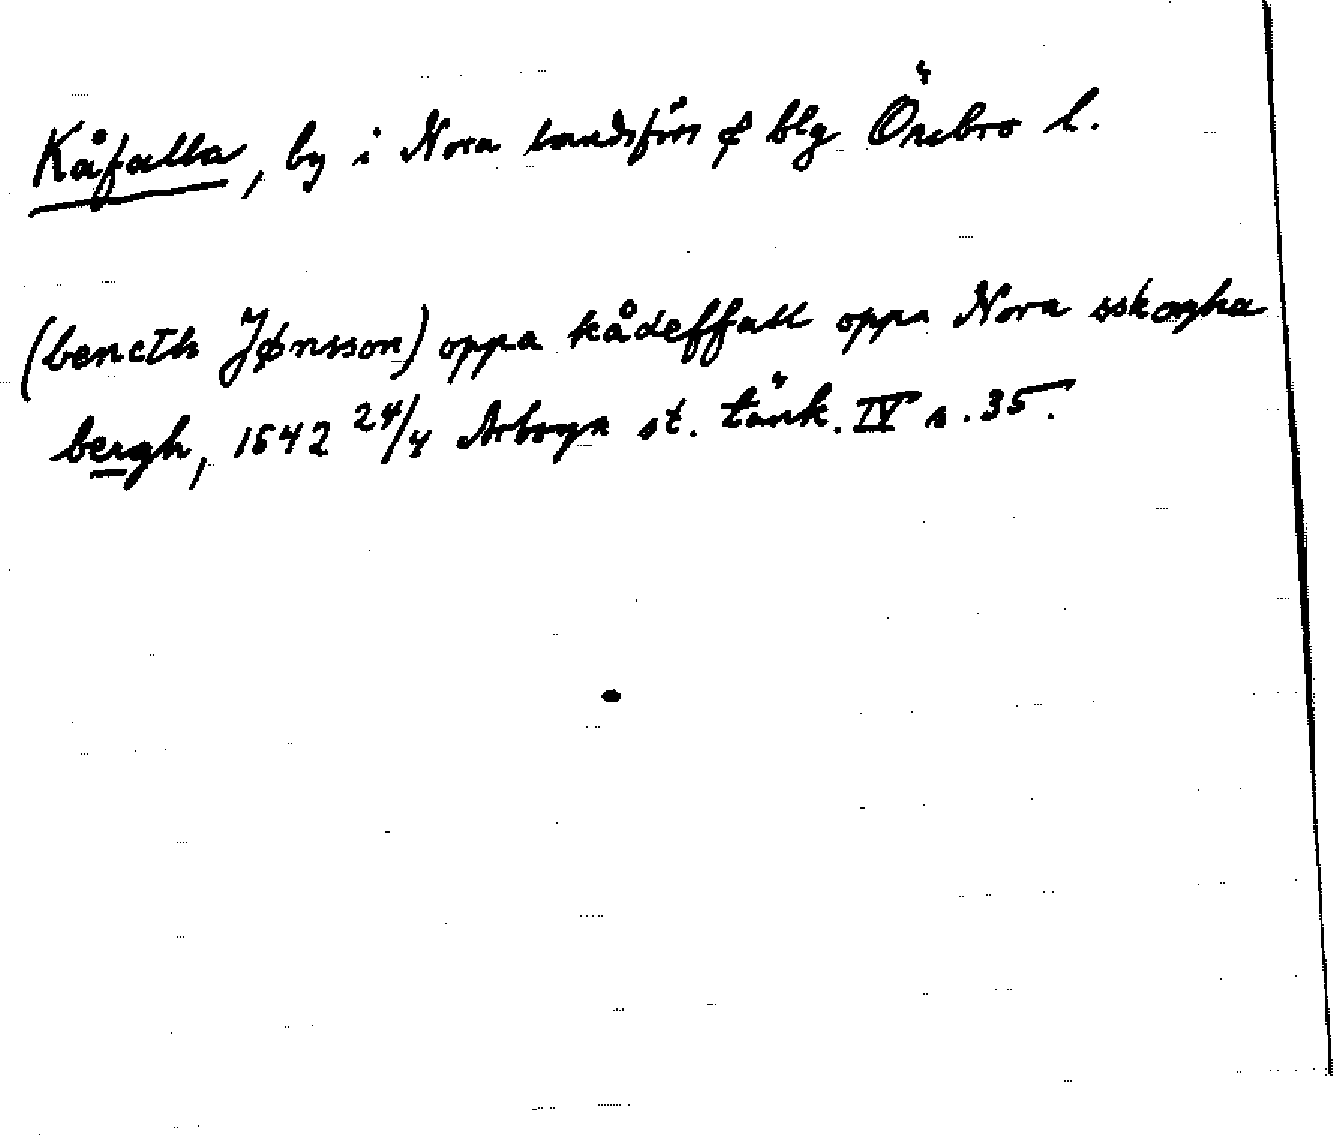 Kåfalla, by i Nora landsförs ø blg Örebro l.
(bencth Jønsson) oppa kådeffall oppa Nora sskogha
bergh, 1542 24/4 Arboga st. tänk. IV s. 35.